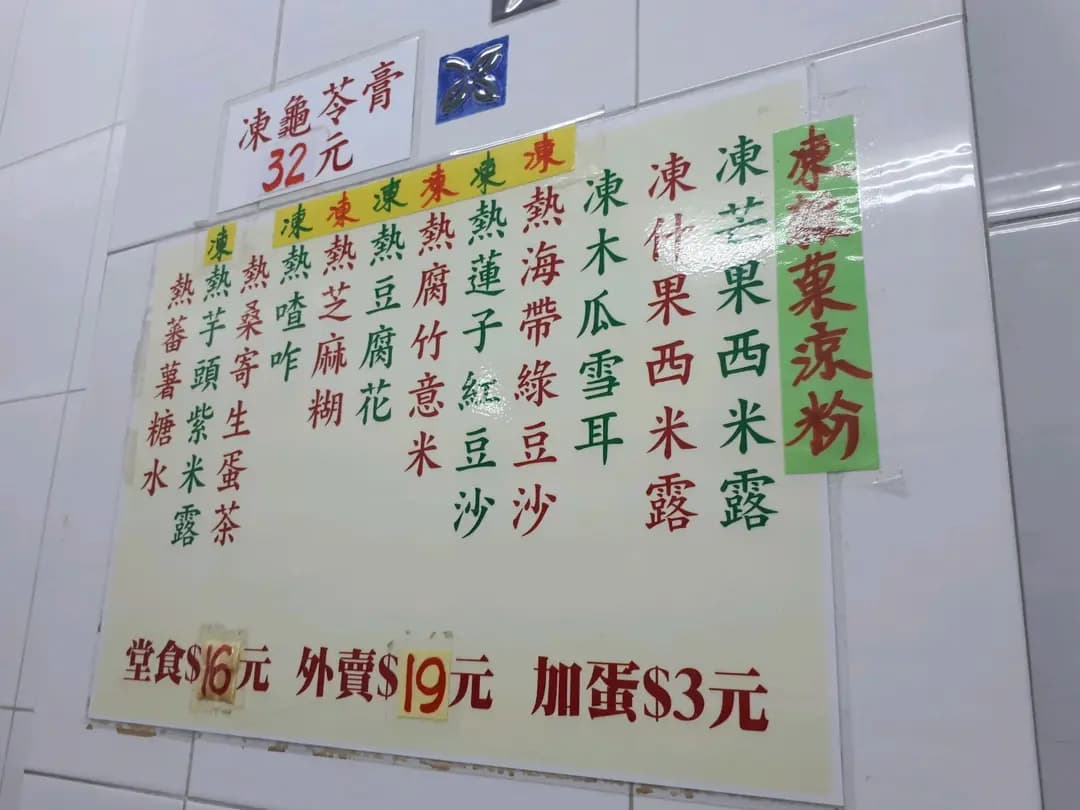 凍龜苓膏
32元
凍菓涼粉
凍芒果西米露
凍什果西米露
凍木瓜雪耳
凍熱海帶綠豆沙
凍熱蓮子紅豆沙
凍熱腐竹意米
凍熱豆腐花
凍熱芝麻糊
凍熱喳咋
熱桑寄生蛋茶
凍熱芋頭紫米露
熱蕃薯糖水
堂食$16元 外賣$19元 加蛋$3元